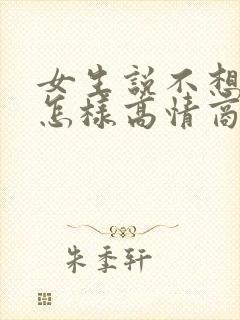 女生说不想
怎样高情商
朱季轩